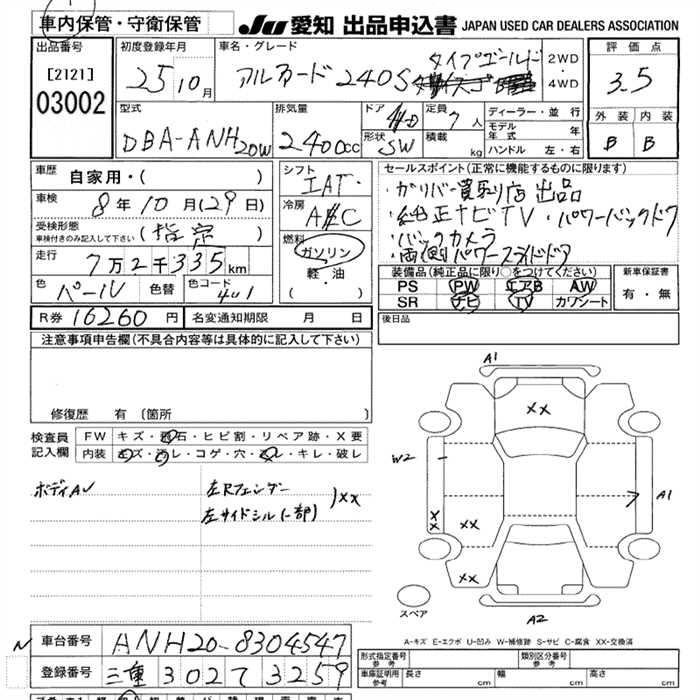 車内保管・守衛保管
JU 愛知 出品申込書 JAPAN USED CAR DEALERS ASSOCIATION
出品番号
[2121]
03002
初度登録年月
25 10月
車名・グレード
アルファード 240S タイプゴールド
2WD
・
4WD
評価点
3.5
外装 内装
B B
型式
DBA-ANH20W
排気量
2400cc
ドア
形状
SW
定員
7人
積載
kg
ディーラー・並行
モデル年式 年
ハンドル 左・右
車歴
自家用・( )
車検
8年10月(29日)
受検形態
車検付きのみ記入して下さい
(指定)
走行
7万2千335km
色
パール
色替
色コード
4U1
シフト
IAT
冷房
A/C
燃料
ガソリン
軽・油
( )
セールスポイント(正常に機能するものに限ります)
・ガリバー買取り店 出品
・純正ナビTV・パワーバックドア
・バックカメラ
・両側パワースライドドア
装備品(純正品に限り○をつけてください)
PS PW エアB AW
SR ナビ TV カワシート
新車保証書
有・無
R券 16260円
名変通知期限 月 日
後日品
注意事項申告欄(不具合内容等は具体的に記入して下さい)
修復歴 有 [箇所 ]
検査員
記入欄
FW キズ・飛石・ヒビ割・リペア跡・X要
内装 キズ・汚レ・コゲ・穴・スレ・キレ・破レ
ボディAU
左Rフェンダー
左サイドシル(一部)
)XX
A1
XX
W2
A1
XX
XX
XX
スペア
A2
A-キズ E-エクボ U-凹み W-補修跡 S-サビ C-腐食 XX-交換済
車台番号 ANH20-8304547
登録番号 三重 302 て 3259
形式指定番号
参考
類別区分番号
参考
車庫証明用
参考
長さ cm 幅 cm 高さ cm